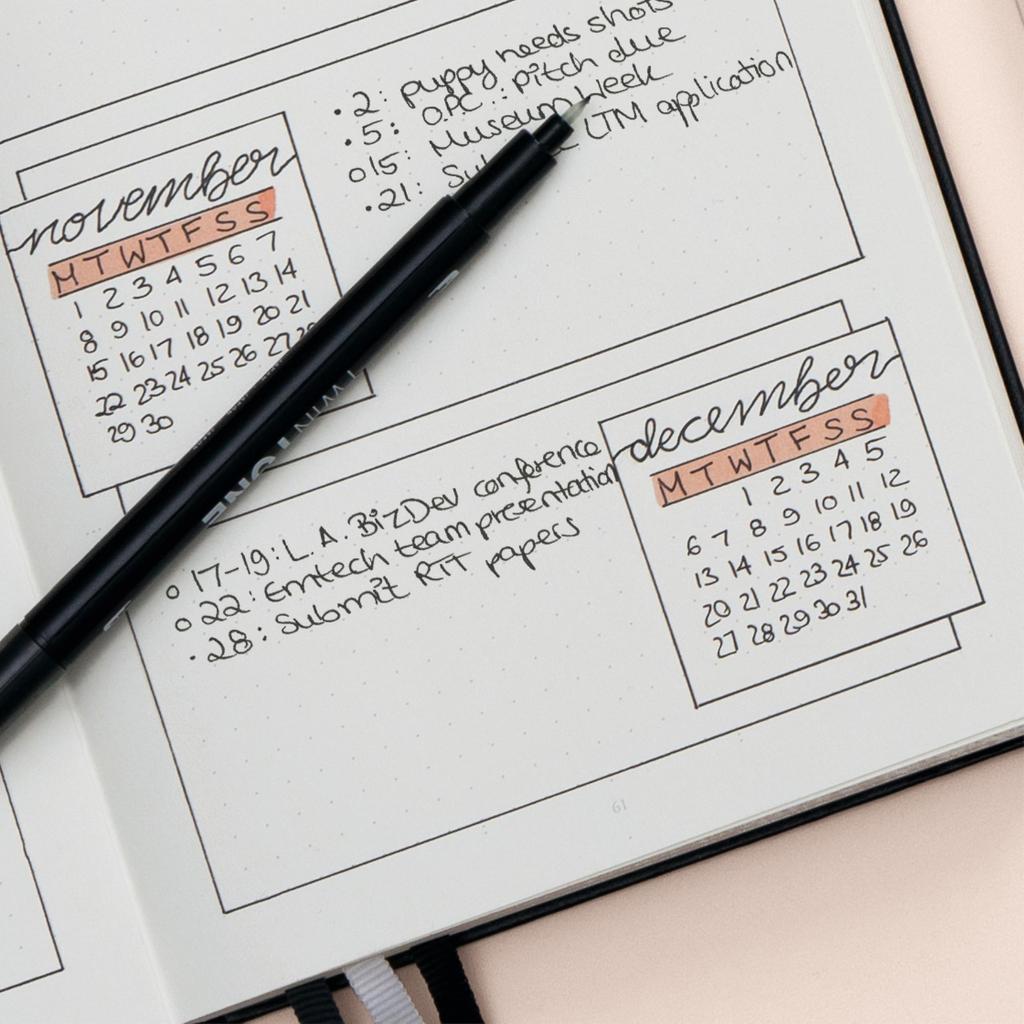 november
M T W T F S S
1 2 3 4 5 6 7
8 9 10 11 12 13 14
15 16 17 18 19 20 21
22 23 24 25 26 27 28
29 30
• 2: puppy needs shots
• 5: OPC: pitch due
o 15: Museum Week
• 21: LTM application
o 17-19: L.A. BizDev conference
o 22: Emtech team presentation
• 28: Submit RIT papers
december
M T W T F S S
1 2 3 4 5
6 7 8 9 10 11 12
13 14 15 16 17 18 19
20 21 22 23 24 25 26
27 28 29 30 31
TWIN TONE
61